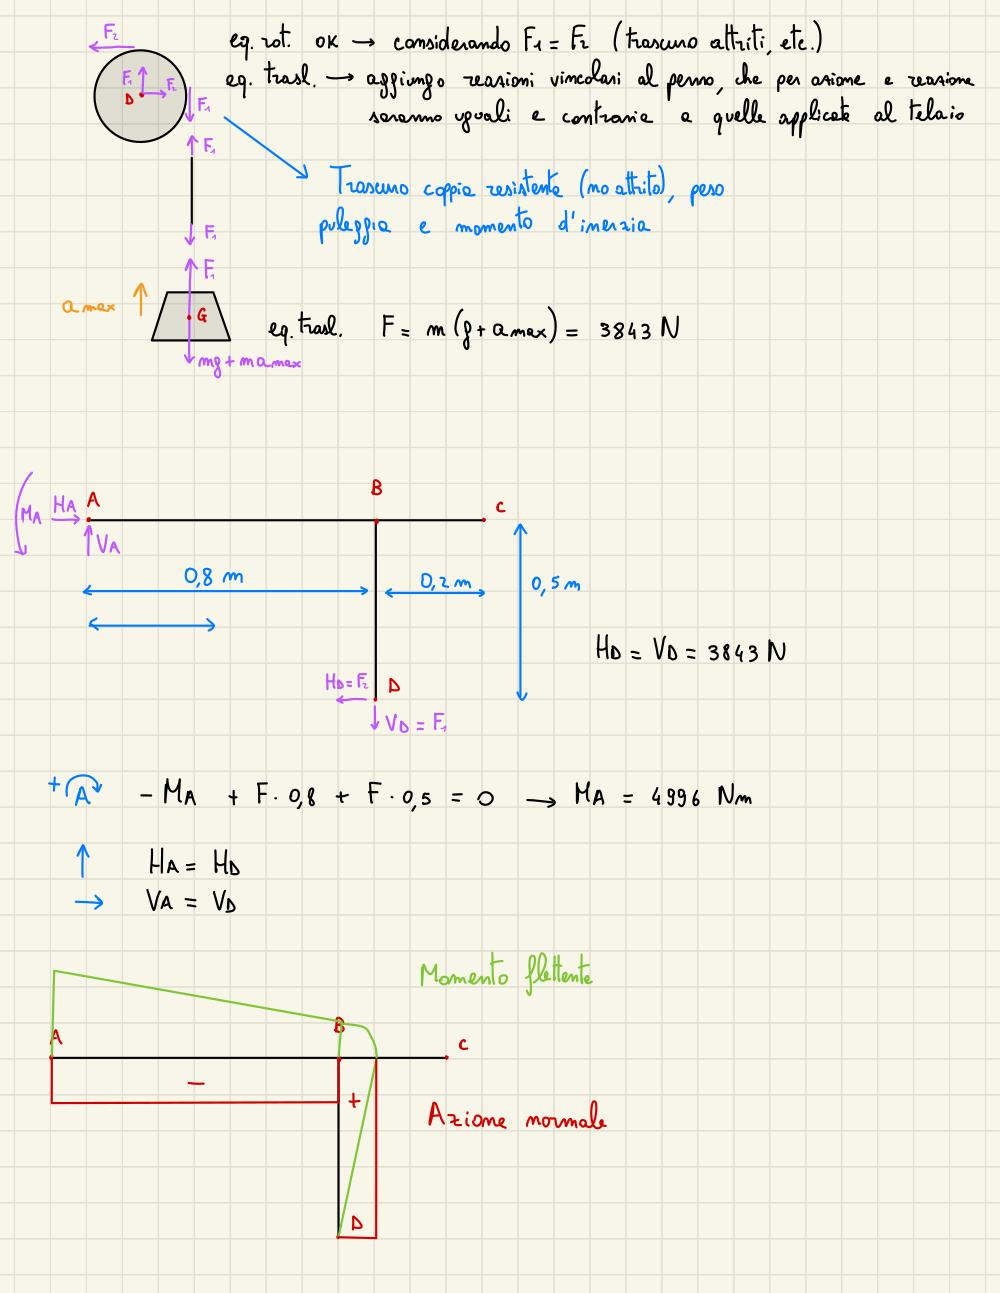 F₂
eq. rot. OK → considerando F₁ = F₂ (trascuro attriti, etc.)
F₁
F₂
D
F₁
eq. trasl. → aggiungo reazioni vincolari al perno, che per azione e reazione
saranno uguali e contrarie a quelle applicate al telaio
F₁
Trascuro coppia resistente (no attrito), peso
puleggia e momento d'inerzia
F₁
F₁
a max
G
eq. trasl. F = m (g + a max) = 3843 N
mg + m a max
MA
HA
A
B
C
VA
0,8 m
0,2 m
0,5 m
HD = VD = 3843 N
HD = F₂
D
VD = F₁
+ A - MA + F · 0,8 + F · 0,5 = 0 → MA = 4996 Nm
↑ HA = HD
→ VA = VD
Momento flettente
A
B
C
-
+
Azione normale
D